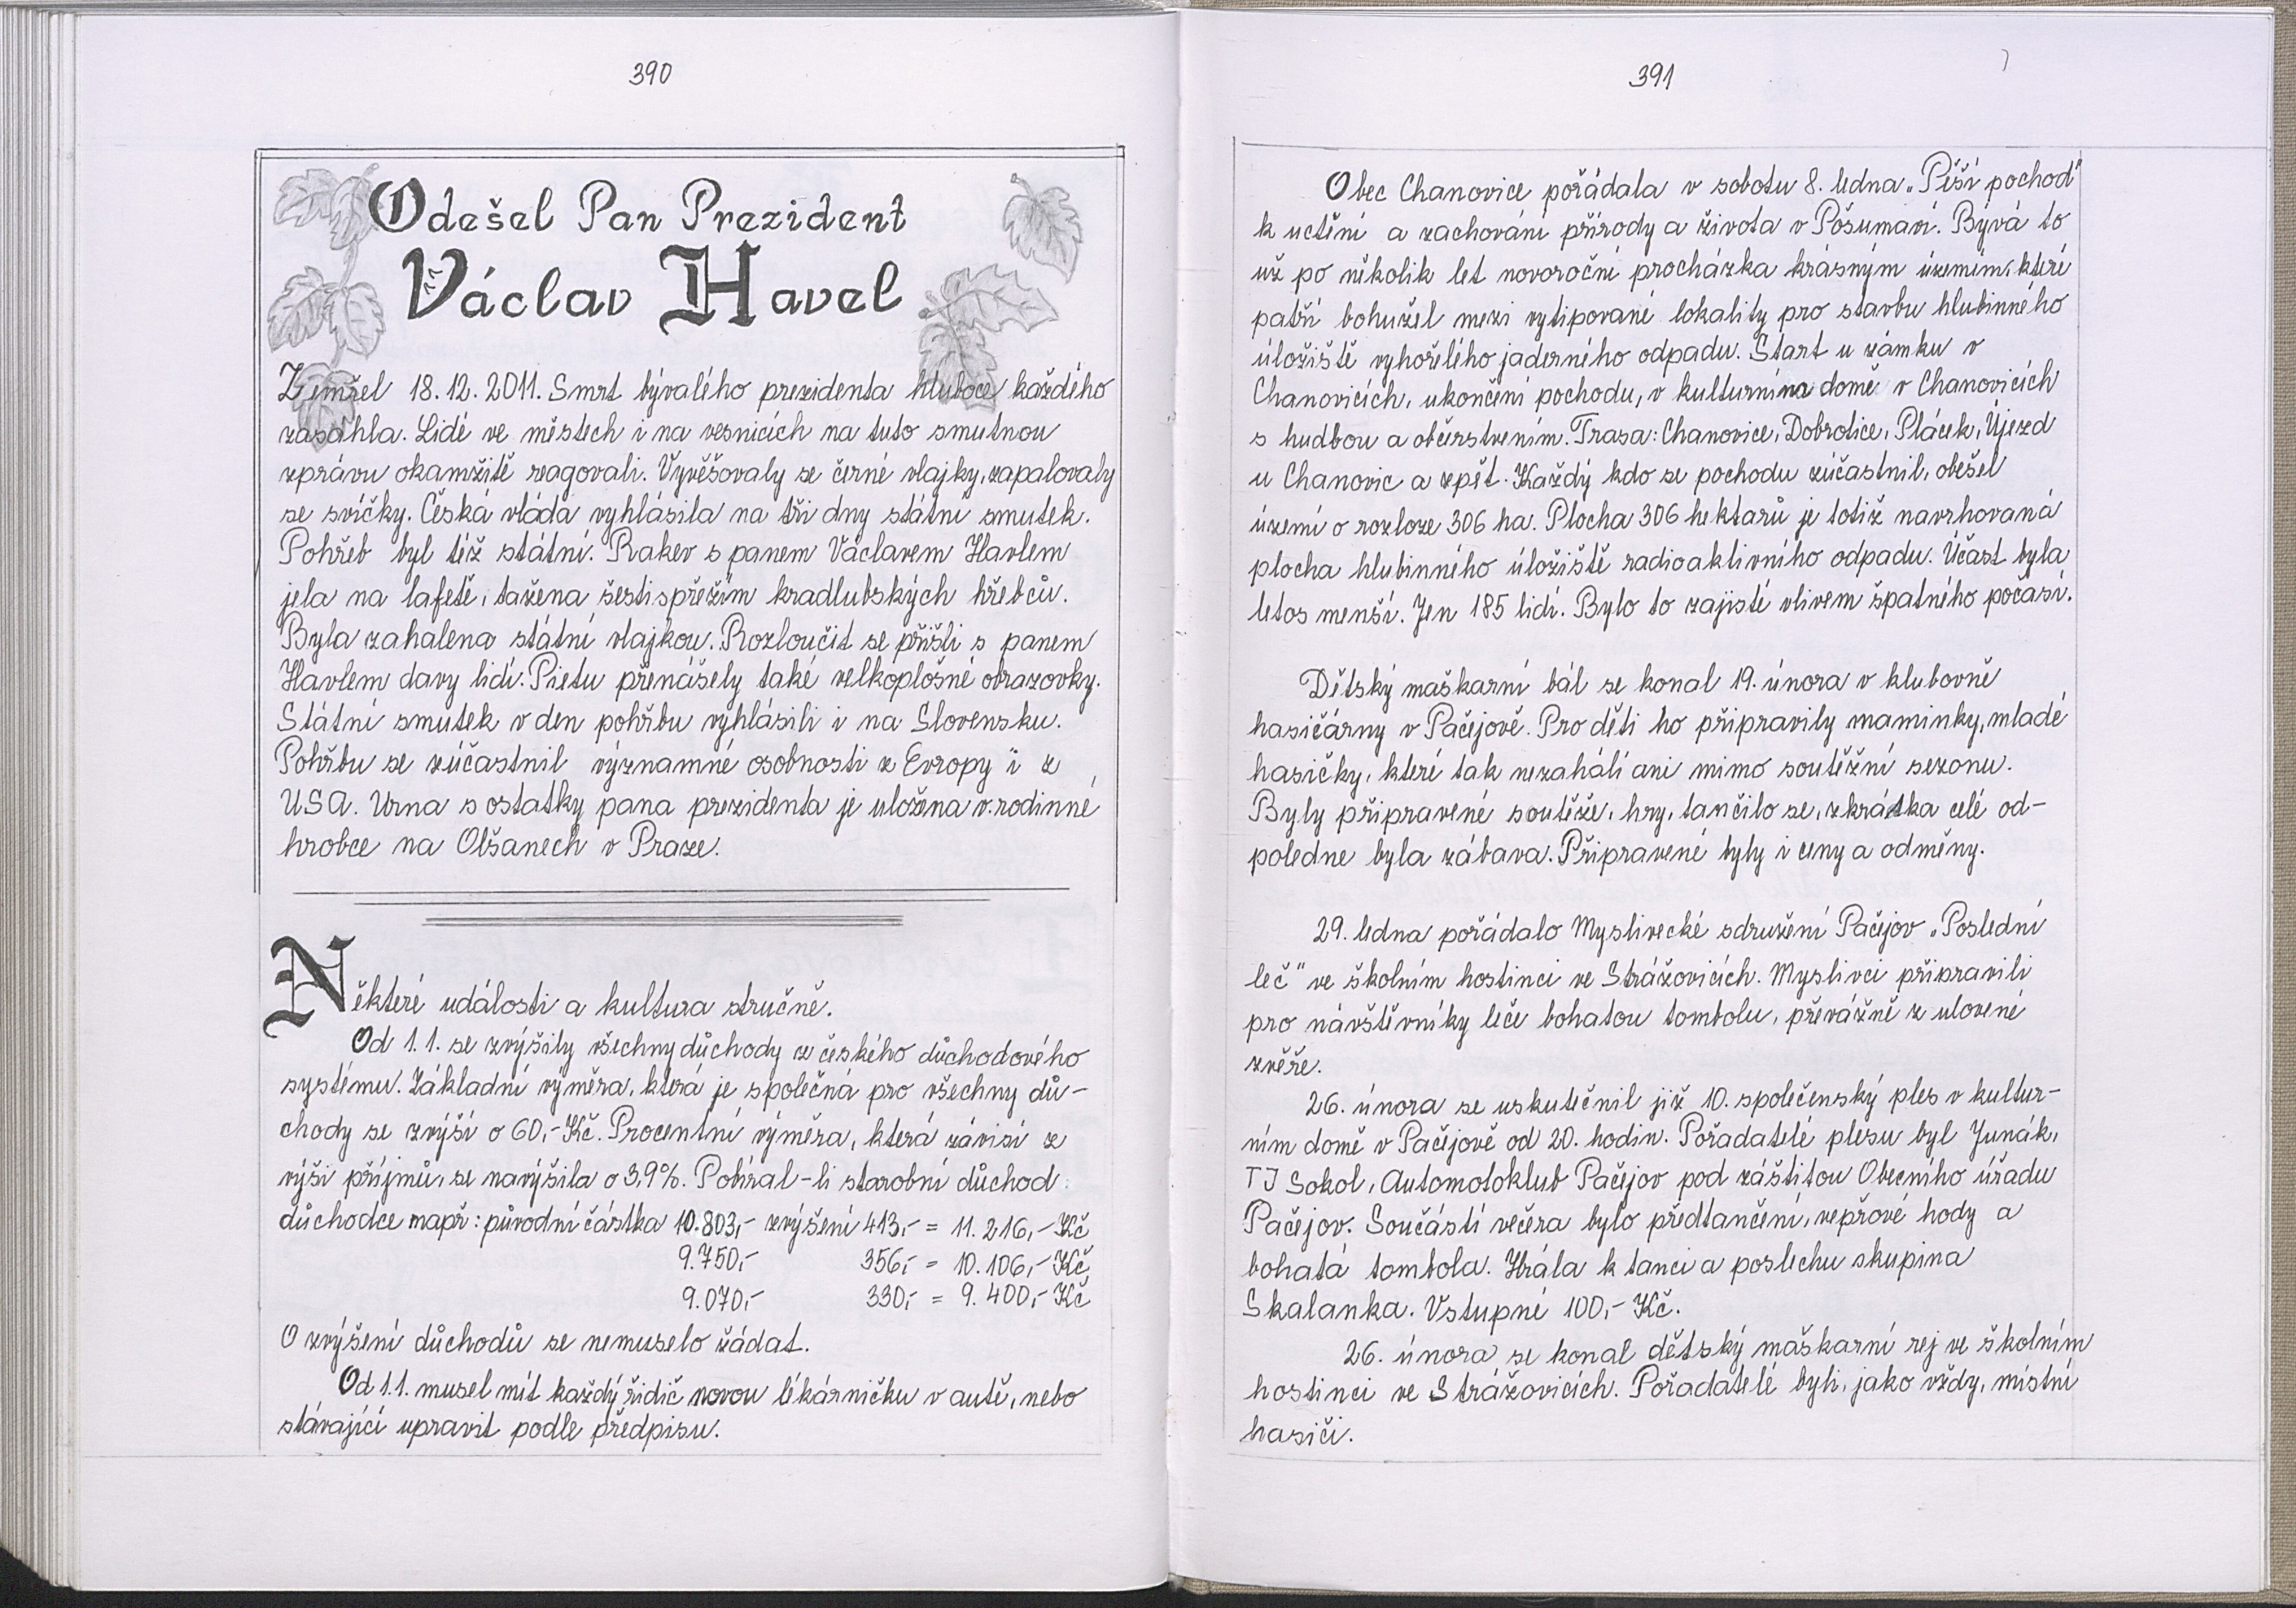 390
Odešel Pan Prezident
Václav Havel
Zemřel 18.12.2011. Smrt bývalého prezidenta hluboce každého
zasáhla. Lidé ve městech i na vesnicích na tuto smutnou
zprávu okamžitě reagovali. Vyvěšovaly se černé vlajky, zapalovaly
se svíčky. Česká vláda vyhlásila na tři dny státní smutek.
Pohřeb byl též státní. Rakev s panem Václavem Havlem
jela na lafetě, tažena šestispřežím kradlubských hřebců.
Byla zahalena státní vlajkou. Rozloučit se přišli s panem
Havlem davy lidí. Pietu přenášely také velkoplošné obrazovky.
Státní smutek v den pohřbu vyhlásili i na Slovensku.
Pohřbu se zúčastnil významné osobnosti z Evropy i z
USA. Urna s ostatky pana prezidenta je uložena v rodinné
hrobce na Olšanech v Praze.
Některé události a kultura stručně.
Od 1.1. se zvýšily všechny důchody z českého důchodového
systému. Základní výměra, která je společná pro všechny dů-
chody se zvýší o 60,- Kč. Procentní výměra, která závisí z
výši příjmů, se navýšila o 3,9%. Pobíral-li starobní důchod
důchodce např: původní částka 10.803,- zvýšení 413,- = 11.216,- Kč
9.750,- 356,- = 10.106,- Kč
9.070,- 330,- = 9.400,- Kč
O zvýšení důchodů se nemuselo žádat.
Od 1.1. musel mít každý řidič novou lékárničku v autě, nebo
stávající upravit podle předpisu.
391
Obec Chanovice pořádala v sobotu 8. ledna „Pěší pochod"
k uctění a zachování přírody a života v Pošumaví. Bývá to
už po několik let novoroční procházka krásným územím, které
patří bohužel mezi vytipované lokality pro stavbu hlubinného
úložiště vyhořelého jaderného odpadu. Start u zámku v
Chanovicích, ukončení pochodu, v kulturním domě v Chanovicích
s hudbou a občerstvením. Trasa: Chanovice, Dobrotice, Plácek, Újezd
u Chanovic a zpět. Každý kdo se pochodu zúčastnil, obešel
území o rozloze 306 ha. Plocha 306 hektarů je totiž navrhovaná
plocha hlubinného úložiště radioaktivního odpadu. Účast byla
letos menší. Jen 185 lidí. Bylo to zajisté vlivem špatného počasí.
Dětský maškarní bál se konal 19. února v klubovně
hasičárny v Pačejově. Pro děti ho připravily maminky, mladé
hasičky, které tak nezahálí ani mimo soutěžní sezonu.
Byly připravené soutěže, hry, tančilo se, zkrátka celé od-
poledne byla zábava. Připravené byly i ceny a odměny.
29. ledna pořádalo Myslivecké sdružení Pačejov „Poslední
leč" ve školním hostinci ve Strážovicích. Myslivci připravili
pro návštěvníky leče bohatou tombolu, převážně z ulovené
zvěře.
26. února se uskutečnil již 10. společenský ples v kultur-
ním domě v Pačejově od 20. hodin. Pořadatelé plesu byl Junák,
TJ Sokol, Automotoklub Pačejov pod záštitou Obecního úřadu
Pačejov. Součástí večera bylo předtančení, vepřové hody a
bohatá tombola. Hrála k tanci a poslechu skupina
Skalanka. Vstupné 100,- Kč.
26. února se konal dětský maškarní rej ve školním
hostinci ve Strážovicích. Pořadatelé byli, jako vždy, místní
hasiči.